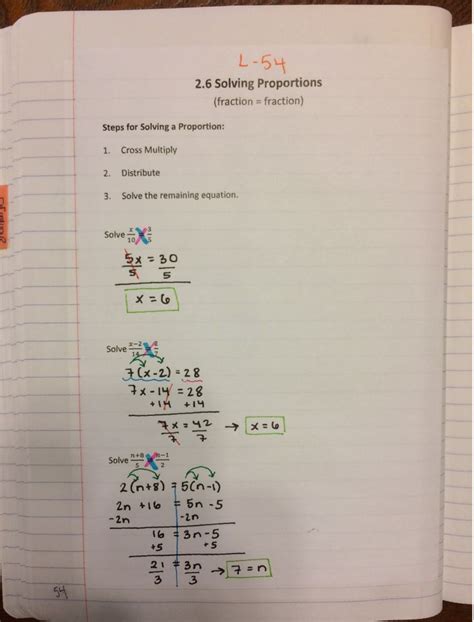 L-54
2.6 Solving Proportions
(fraction = fraction)
Steps for Solving a Proportion:
1. Cross Multiply
2. Distribute
3. Solve the remaining equation.
Solve x/10 = 3/5
5x = 30
5 5
x = 6
Solve x-2/14 = 2/7
7(x-2) = 28
7x - 14 = 28
+14 +14
7x = 42 → x = 6
7 7
Solve n+8/5 = n-1/2
2(n+8) = 5(n-1)
2n +16 = 5n -5
-2n -2n
16 = 3n-5
+5 +5
21 = 3n → 7 = n
3 3
54